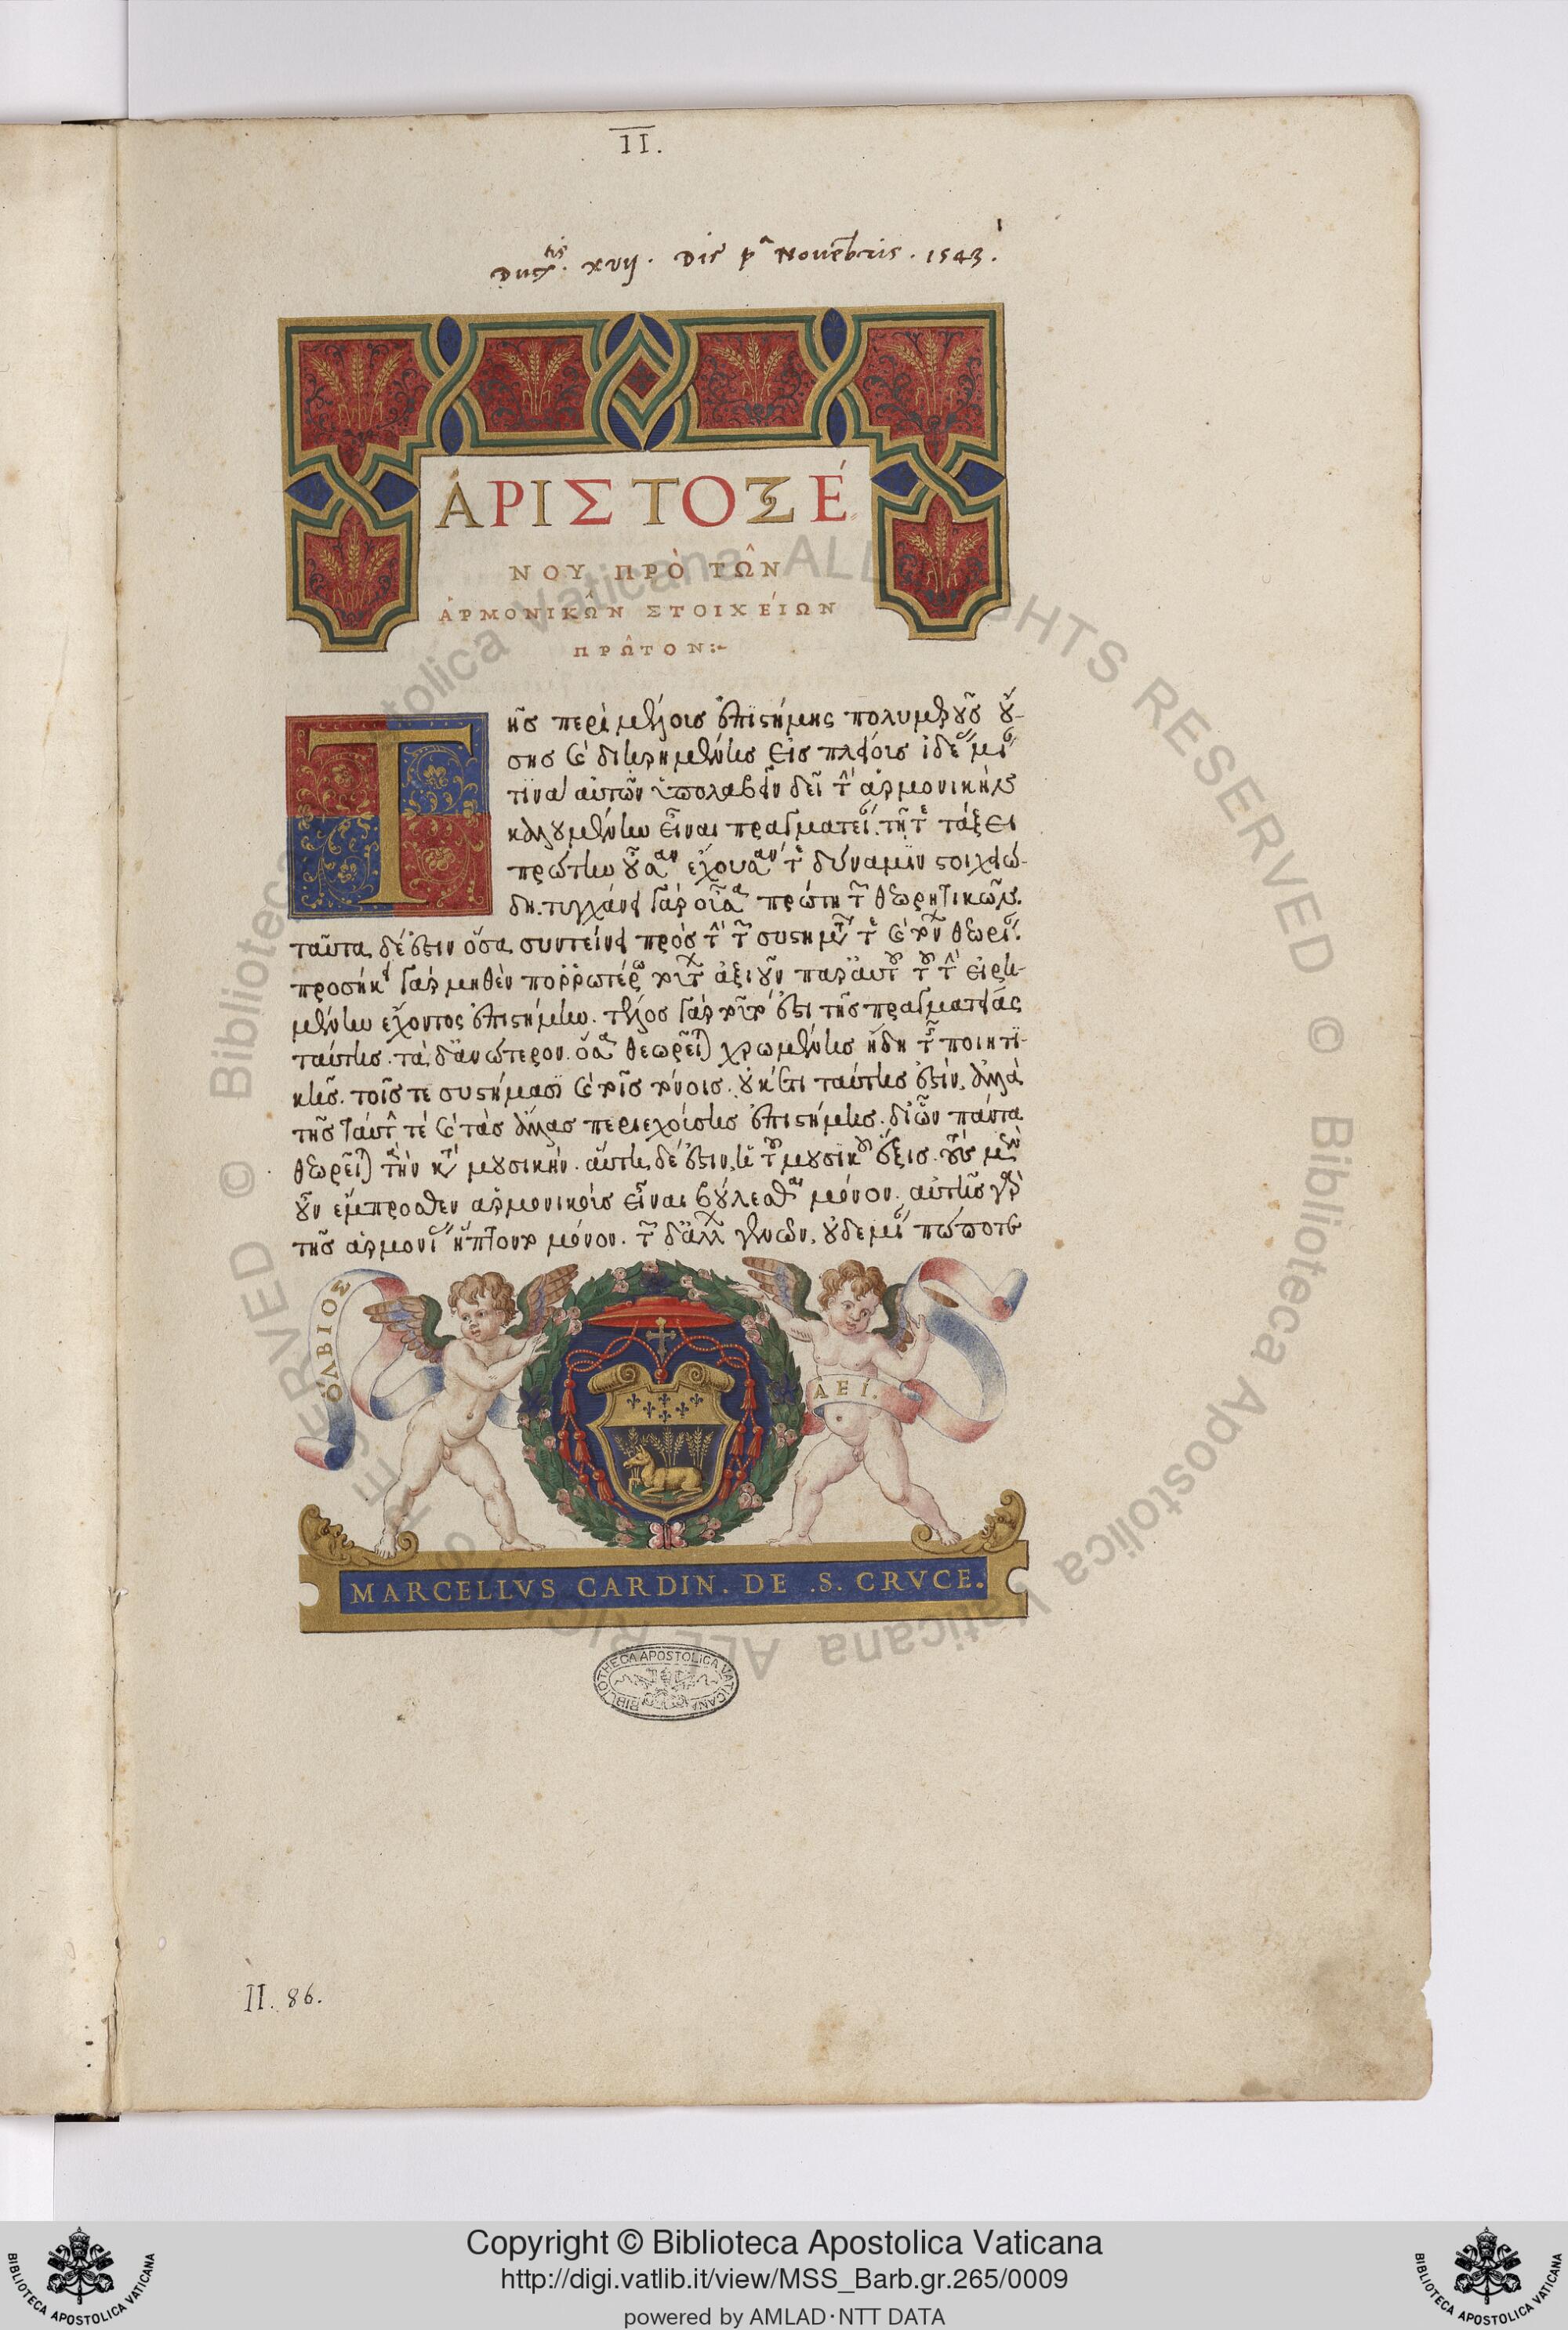 II.
Ducatis. xvij. Die pa Novembris. 1543.
ἈΡΙΣΤΟΞΈ
ΝΟΥ ΠΡῸ ΤΩ͂Ν
ἉΡΜΟΝΙΚΩ͂Ν ΣΤΟΙΧΕΊΩΝ
ΠΡΩ͂ΤΟΝ:~
Τῆς περὶ μέλους ἐπιστήμης πολυμεροῦς οὔ-
σης καὶ διῃρημένης εἰς πλείους ἰδέας μίαν
τινὰ αὐτῶν ὑπολαβεῖν δεῖ τὴν ἁρμονικὴν
καλουμένην εἶναι πραγματείαν. τῇ τε τάξει
πρώτην οὖσαν ἔχουσαν τε δύναμιν στοιχειώ-
δη. τυγχάνει γὰρ οὖσα πρώτη τῶν θεωρητικῶν.
ταῦτα δέ ἐστιν ὅσα συντείνει πρὸς τὴν τῶν συστημάτων τε καὶ τόνων θεωρίαν.
προσήκει γὰρ μηθὲν πορρωτέρω τούτων ἀξιοῦν παρ' αὐτοῦ τοῦ τὴν εἰρη-
μένην ἔχοντος ἐπιστήμην. τέλος γὰρ τοῦτό ἐστι τῆς πραγματείας
ταύτης. τὰ δ' ἀνώτερον. ὅσα θεωρεῖται χρωμένης ἤδη τῆς ποιητι-
κῆς. τοῖς τε συστήμασι καὶ τοῖς τόνοις. οὐκέτι ταύτης ἐστὶν, ἀλλὰ
τῆς ταύτην τε καὶ τὰς ἄλλας περιεχούσης ἐπιστήμης. δι' ὧν πάντα
θεωρεῖται τὰ κατὰ μουσικήν. αὕτη δέ ἐστιν, ἡ τοῦ μουσικοῦ ἕξις. τοὺς μὲν
οὖν ἔμπροσθεν ἁρμονικοὺς εἶναι βούλεσθαι μόνον. αὐτῆς γὰρ
τῆς ἁρμονίας ἥπτοντο μόνον. τῶν δ' ἄλλων γενῶν, οὐδεμίαν πώποτε
ὈΛΒΙΟΣ
ΑΕΊ.
MARCELLVS CARDIN. DE .S. CRVCE.
BIBLIOTHECA APOSTOLICA VATICANA
II. 86.
© Biblioteca Apostolica Vaticana ALL RIGHTS RESERVED
Copyright © Biblioteca Apostolica Vaticana
http://digi.vatlib.it/view/MSS_Barb.gr.265/0009
powered by AMLAD·NTT DATA
BIBLIOTECA APOSTOLICA VATICANA
BIBLIOTECA APOSTOLICA VATICANA